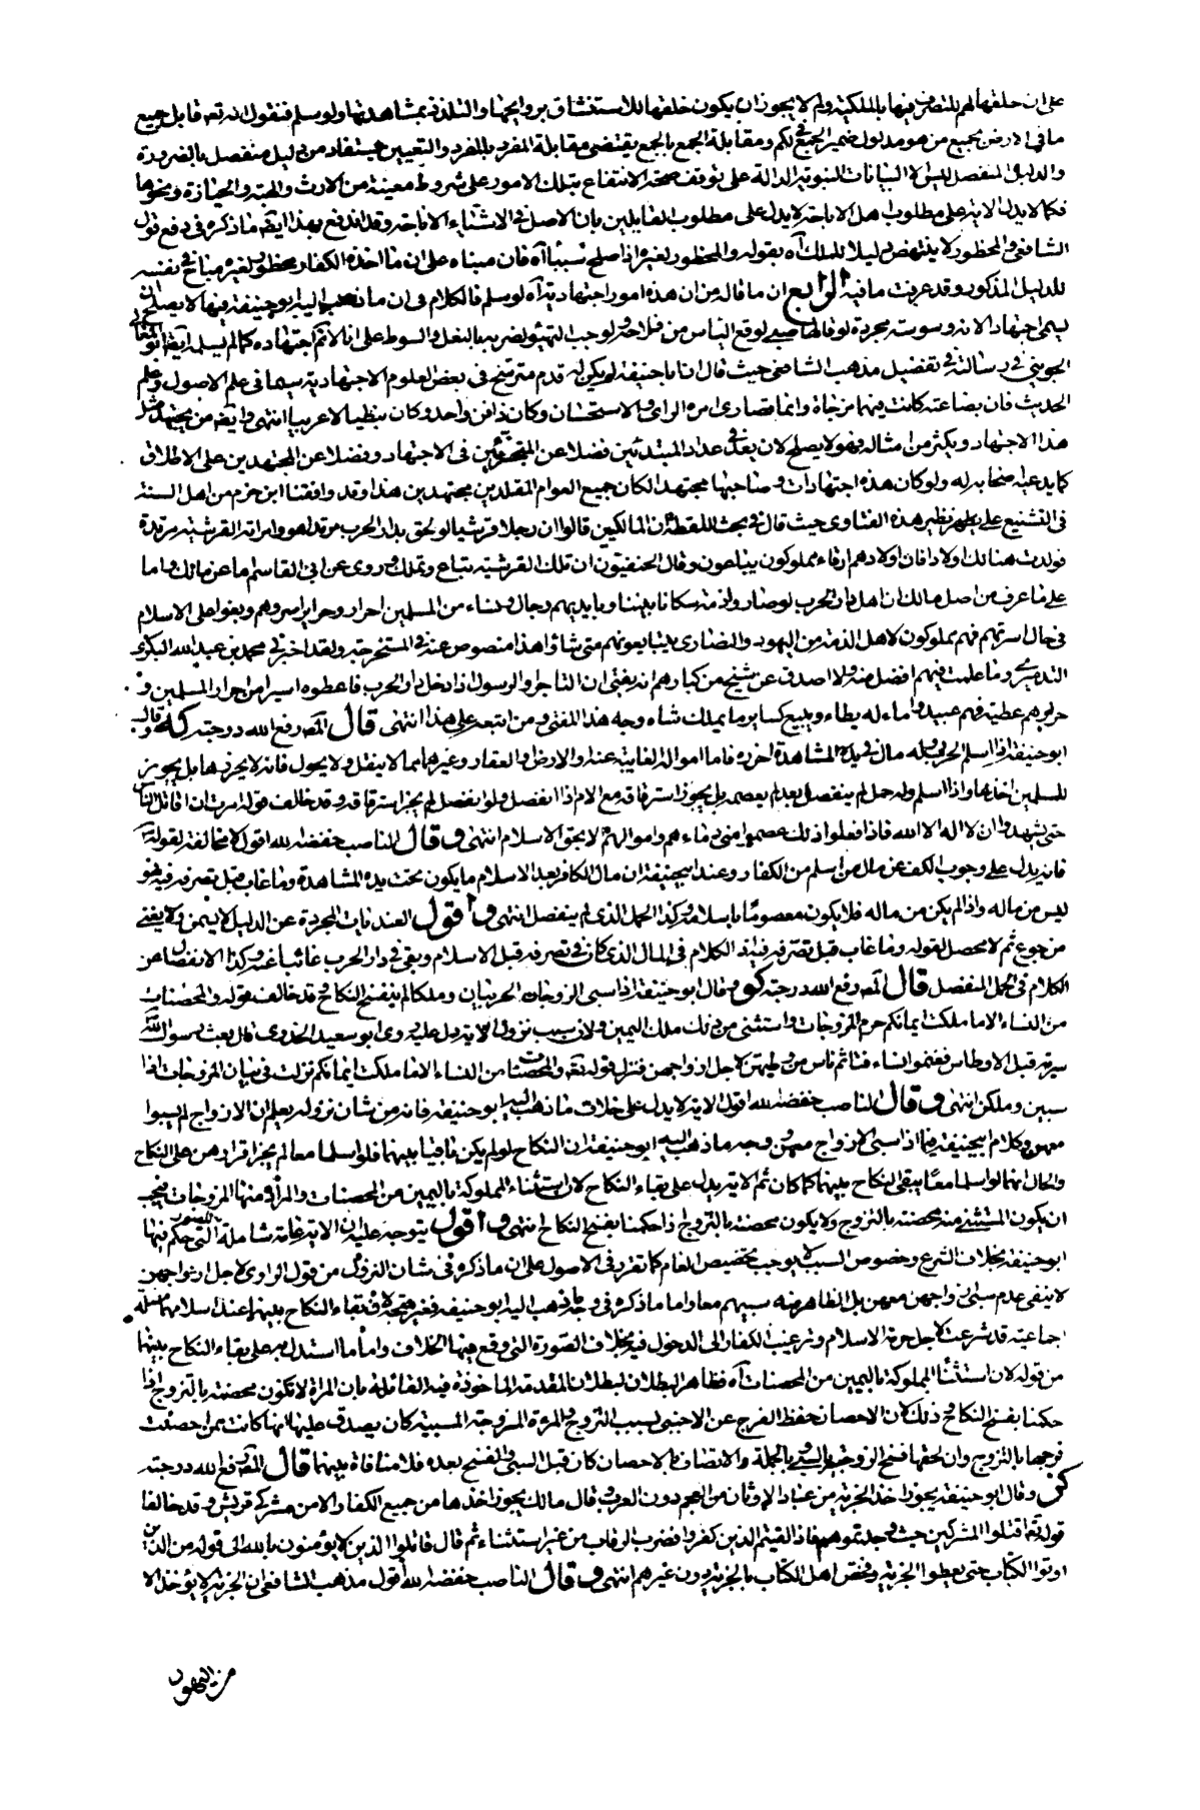 على ان خلقها لهم للتصرف فيها بالملكية ولم لا يجوز ان يكون خلقها للاستنشاق بروايحها والتلذذ بمشاهدتها ولو سلم فنقول انه تعه قابل جميع
ما في الارض بجميع من هو مدلول ضمير الجمع في لكم ومقابلة الجمع بالجمع يقتضى مقابلة المفرد بالمفرد والتعيين مستفاد من دليل منفصل بالضرورة
والدليل المنفصل ليس الا البيانات النبوية الدالة على توقف صحة الانتفاع بتلك الامور على شروط معينة من الارث والهبة والحيازة ونحوها
فكما لا يدل الاية على مطلوب اهل الاباحة لا يدل على مطلوب القايلين بان الاصل في الاشياء الاباحة وقد اندفع بهذا ايضا ما ذكره في دفع قول
الشافعي والمحظور لا ينتهض دليلا للملك آه بقوله والمحظور لغيره اذا صلح سببا آه فان مبناه على ان ما اخذه الكفار محظور لغيره مباح في نفسه
للدليل المذكور وقد عرفت ما فيه الرابع ان ما قاله من ان هذه امور اجتهادية آه لو سلم فالكلام في ان ما ذهب اليه ابو حنيفة فيها لا يصلح ان
يسمى اجتهادا لانه وسوسة مجردة لو قالها صبي لوقع الياس من فلاحه ولوجب لضربه بالنعل والسوط على انا لا نم اجتهاده كما لم يسلمه ايضا ابو المعالي
الجويني في رسالته في تفضيل مذهب الشافعي حيث قال ان ابا حنيفة لم يكن له قدم مترسخ في بعض العلوم الاجتهادية سيما في علم الاصول وعلم
الحديث فان بضاعته كانت فيهما مزجاة وانما قصارى امره الراي والاستحسان وكان ذا فن واحد وكان نبطيا لا عربيا انتهى وايضا من يجتهد مثل
هذا الاجتهاد ويكثر من امثاله فهو لا يصلح لان يعد في عداد المبتدئين فضلا عن في الاجتهاد وفضلا عن المجتهدين على الاطلاق
كما يدعيه اصحابه له ولو كان هذه اجتهادات وصاحبها مجتهدا لكان جميع العوام المقلدين مجتهدين هذا وقد وافقنا ابن حزم من اهل السنة
في التشنيع على نظير هذه الفتاوى حيث قال في بحث اللقطة ان المالكيين قالوا ان رجلا قرشيا لو لحق بدار الحرب مرتدا هو وامراته القرشية مرتدة
فولدت هنالك اولادا فان اولادهم ارقاء مملوكون يتباعون وقال الحنفيون ان تلك القرشية تباع وتملك وروى عن ابن القاسم ما عن مالك واما
على ما عرف من اصل مالك ان اهل دار الحرب لو صاروا ذمة سكانا بيننا وبايديهم رجال ونساء من المسلمين احرار وحراير اسروهم وبقوا على الاسلام
في حال اسرتهم فهم مملوكون لاهل الذمة من اليهود والنصارى يتبايعونهم متى شاؤا هذا منصوص عنه في المستخرجة ولقد اخبرني محمد بن عبد الله البكري
التدميري وما علمت فيهم افضل منه ولا اصدق عن شيخ من كبارهم انه يفتى ان التاجر والرسول اذا دخل دار الحرب فاعطوه اسيرا من احرار المسلمين و
حرايرهم عطية فهم عبيد واماء له يطاء ويبيع كساير ما يملك شاه وجه هذا المفتى ومن اتبعه على هذا انتهى قال المص رفع الله درجته كه وقال
ابو حنيفة اذا اسلم الحربي وله مال في يده المشاهدة احرزه فاما امواله الغايبة عنه والارض والعقار وغيرهما مما لا ينقل ولا يحول فانه لا يحرزها بل يجوز
للمسلمين اخذها واذا اسلم وله حمل لم ينفصل بعد لم يعصمه بل يجوز استرقاقه مع الام اذا انفصل ولو لم ينفصل لم يجز استرقاقه وقد خالف قوله امرت ان اقاتل الناس
حتى يشهدوا ان لا اله الا الله فاذا فعلوا ذلك عصموا مني دماءهم واموالهم الا بحق الاسلام انتهى وقال الناصب خفضه الله اقول لا مخالفة لقوله
فانه يدل على وجوب الكف عن مال من اسلم من الكفار وعند ابيحنيفة ان مال الكافر بعد الاسلام ما يكون تحت يده المشاهدة وما غاب قبل تصرفه فيه فهو
ليس من ماله واذا لم يكن من ماله فلا يكون معصوما باسلامه وكذا الحمل الذي لم ينفصل انتهى واقول العنديات المجردة عن الدليل لا يسمن ولا يغنى
من جوع ثم لا محصل لقوله وما غاب قبل تصرفه فيه اذ الكلام في المال الذي كان في تصرفه قبل الاسلام وبقى في دار الحرب غائبا عنه وكذا الانفصال عن
الكلام في الحمل المنفصل قال المص رفع الله درجته كو وقال ابو حنيفة اذا سبى الزوجان الحربيان وملكا لم ينفسخ النكاح وقد خالف قوله والمحصنات
من النساء الا ما ملكت ايمانكم حرم المزوجات واستثنى من ذلك ملك اليمين ولان سبب نزول الاية يدل عليه روى ابو سعيد الخدري قال بعث رسول الله
سرية قبل الاوطاس فغنموا نساء فتاثم ناس من وطيهن لاجل ازواجهن فنزل قوله تعه والمحصنات من النساء الا ما ملكت ايمانكم نزلت في بيان المزوجات اذا
سبين وملكن انتهى وقال الناصب خفضه الله اقول الاية لا يدل على خلاف ما ذهب اليه ابو حنيفة فانه من شان نزوله يعلم ان الازواج لم يسبوا
معهن وكلام ابيحنيفة فيما اذا سبى الازواج معهن ووجه ما ذهب اليه ابو حنيفة ان النكاح لو لم يكن باقيا بينهما فلو اسلما معا لم يجز اقرارهن على النكاح
والحال انهما لو اسلما معا يبقى النكاح بينهما كما كان ثم الاية يدل على بقاء النكاح لان استثناء المملوكة باليمين من المحصنات والمراد منها المزوجات فيجب
ان يكون المستثنى منه محصنة بالتزوج ولا يكون محصنة بالتزوج اذا حكمنا بفسخ النكاح انتهى واقول يتوجه عليه ان الاية عامة شاملة للصور التي حكم فيها
ابو حنيفة بخلاف الشرع وخصوص السبب لا يوجب تخصيص العام كما تقرر في الاصول على ان ما ذكره في شان النزول من قول الراوي لاجل ازواجهن
لا ينفى عدم سبى ازواجهن معهن بل الظاهر منه سبيهم معا واما ما ذكره في وجه ما ذهب اليه ابو حنيفة فغير متجه لان بقاء النكاح بينهما عند اسلامهما مسئلة
اجماعية قد شرعت لاجل حرمة الاسلام وترغيب الكفار الى الدخول فيه بخلاف الصورة التي وقع فيها الخلاف واما ما استدل به على بقاء النكاح بينهما
من قوله لان استثناء المملوكة باليمين من المحصنات آه فظاهر البطلان لبطلان المقدمة الماخوذة فيه القائلة بان المراة لا تكون محصنة بالتزوج اذا
حكمنا بفسخ النكاح وذلك لان الاحصان حفظ الفرج عن الاجنبي بسبب التزوج والمرءة المزوجة المسبية كان يصدق عليها انها كانت ممن احصنت
فرجها بالتزوج وان لحقها فسخ الزوجية بالسبي وبالجملة والاتصاف بالاحصان كان قبل السبى والفسخ بعده فلا منافاة بينهما قال المص رفع الله درجته
كز وقال ابو حنيفة يجوز اخذ الجزية من عباد الاوثان من العجم دون العرب وقال مالك يجوز اخذها من جميع الكفار الا من مشركي قريش وقد خالفا
قوله تعه اقتلوا المشركين حيث وجدتموهم فاذا لقيتم الذين كفروا فضرب الرقاب من غير استثناء ثم قال قاتلوا الذين لا يؤمنون بالله الى قوله من الذين
اوتوا الكتاب حتى يعطوا الجزية وخص اهل الكتاب بالجزية دون غيرهم انتهى وقال الناصب خفضه الله اقول مذهب الشافعي ان الجزية لا يؤخذ الا
من اليهود